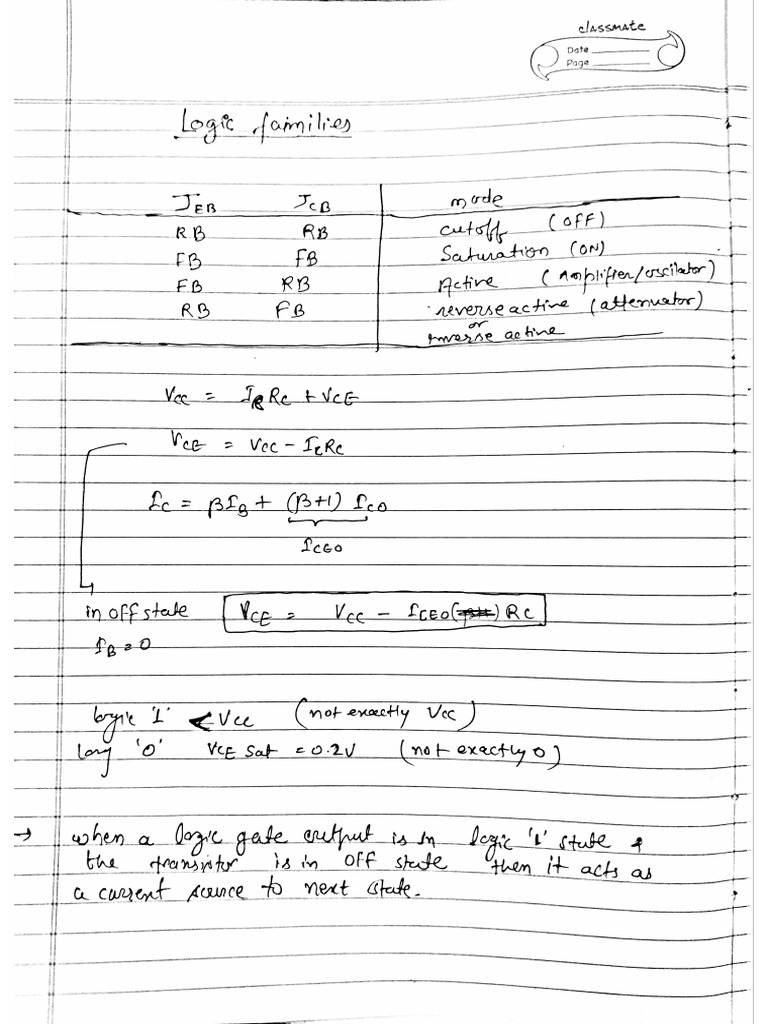 classmate
Date
Page
Logic families
J_EB J_CB mode
RB RB cutoff (OFF)
FB FB Saturation (ON)
FB RB Active (Amplifier/oscilator)
RB FB reverse active (attenuator)
or
inverse active
Vcc = I_B Rc + V_CE
V_CE = Vcc - I_C Rc
I_C = βI_B + (β+1) I_CO
I_CEO
in off state V_CE = Vcc - I_CEO( ) RC
I_B = 0
logic '1' < Vcc (not exactly Vcc)
'0' V_CE sat = 0.2V (not exactly 0)
→ when a logic gate output is in logic '1' state &
the transistor is in off state then it acts as
a current source to next state.